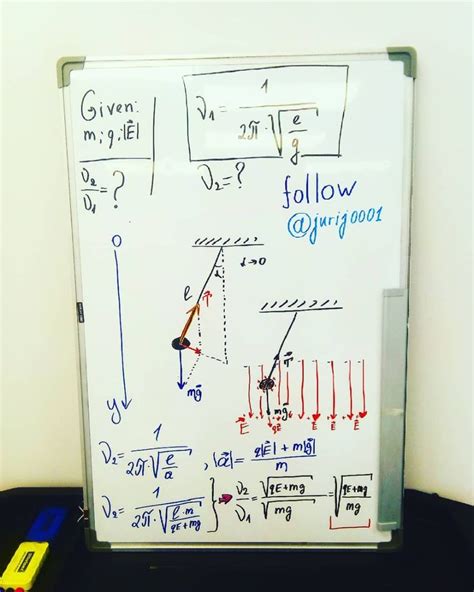 Given:
m; q; |E⃗|
ν₂/ν₁ = ?
ν₁ = 1/(2π·√(ℓ/g))
ν₂ = ?
follow
@jurij0001
0
α
α→0
ℓ
T⃗
mg⃗
y
T⃗
mg⃗
E⃗ qE⃗ E⃗ E⃗ E⃗
ν₂ = 1/(2π·√(ℓ/a)) , |a⃗| = (q|E⃗| + m|g⃗|)/m
ν₂ = 1/(2π·√(ℓ·m/(qE+mg))) } ⇒ ν₂/ν₁ = √(qE+mg)/√(mg) = √((qE+mg)/mg)